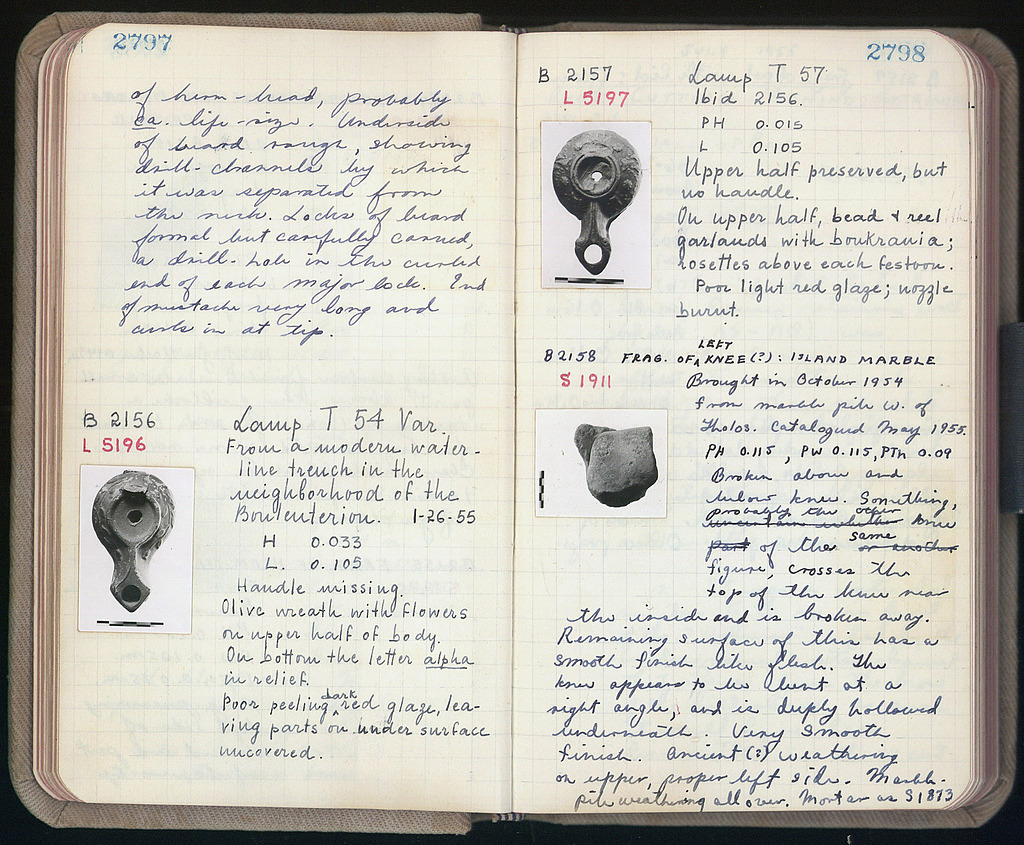 2797
of herm-head, probably
ca. life-size. Underside
of beard rough, showing
drill-channels by which
it was separated from
the neck. Locks of beard
formal but carefully carved,
a drill-hole in the curled
end of each major lock. End
of mustache very long and
curls in at tip.
B 2156
L 5196
Lamp T 54 Var.
From a modern water-
line trench in the
neighborhood of the
Bouleuterion. 1-26-55
H 0.033
L. 0.105
Handle missing.
Olive wreath with flowers
on upper half of body.
On bottom the letter alpha
in relief.
Poor peeling dark red glaze, lea-
ving parts on under surface
uncovered.
2798
B 2157
L 5197
Lamp T 57
Ibid 2156.
PH 0.015
L 0.105
Upper half preserved, but
no handle.
On upper half, bead & reel
garlands with boukrania;
rosettes above each festoon.
Poor light red glaze; nozzle
burnt.
B 2158
S 1911
FRAG. OF LEFT KNEE(?): ISLAND MARBLE
Brought in October 1954
from marble pile W. of
Tholos. Catalogued May 1955.
PH 0.115, PW 0.115, PTh 0.09
Broken above and
below knee. Something,
probably the other
uncertain whether knee
part of the same or another
figure, crosses the
top of the knee near
the inside and is broken away.
Remaining surface of this has a
smooth finish like flesh. The
knee appears to be bent at a
right angle, and is deeply hollowed
underneath. Very smooth
finish. Ancient (?) weathering
on upper, proper left side. Marble-
pile weathering all over. Mortar as S 1873